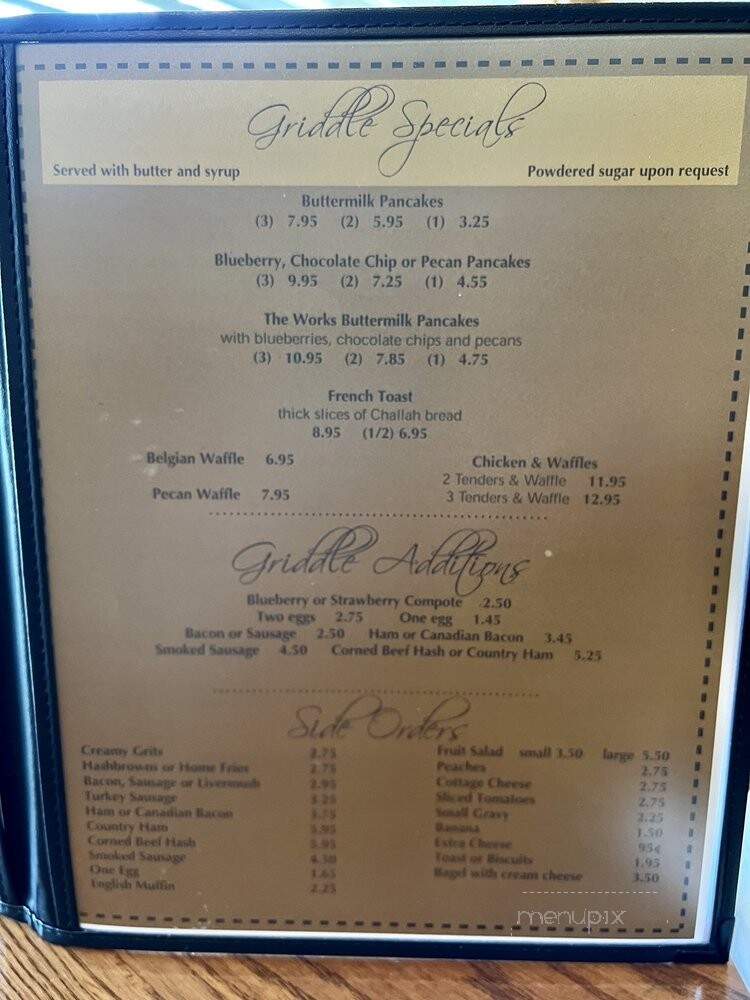 Griddle Specials
Served with butter and syrup Powdered sugar upon request
Buttermilk Pancakes
(3) 7.95 (2) 5.95 (1) 3.25
Blueberry, Chocolate Chip or Pecan Pancakes
(3) 9.95 (2) 7.25 (1) 4.55
The Works Buttermilk Pancakes
with blueberries, chocolate chips and pecans
(3) 10.95 (2) 7.85 (1) 4.75
French Toast
thick slices of Challah bread
8.95 (1/2) 6.95
Belgian Waffle 6.95
Pecan Waffle 7.95
Chicken & Waffles
2 Tenders & Waffle 11.95
3 Tenders & Waffle 12.95
Griddle Additions
Blueberry or Strawberry Compote 2.50
Two eggs 2.75 One egg 1.45
Bacon or Sausage 2.50 Ham or Canadian Bacon 3.45
Smoked Sausage 4.50 Corned Beef Hash or Country Ham 5.25
Side Orders
Creamy Grits 2.75
Hashbrowns or Home Fries 2.75
Bacon, Sausage or Livermush 2.95
Turkey Sausage 3.25
Ham or Canadian Bacon 3.75
Country Ham 5.95
Corned Beef Hash 5.95
Smoked Sausage 4.50
One Egg 1.65
English Muffin 2.25
Fruit Salad small 3.50 large 5.50
Peaches 2.75
Cottage Cheese 2.75
Sliced Tomatoes 2.75
Small Gravy 2.25
Banana 1.50
Extra Cheese 95¢
Toast or Biscuits 1.95
Bagel with cream cheese 3.50
menupix